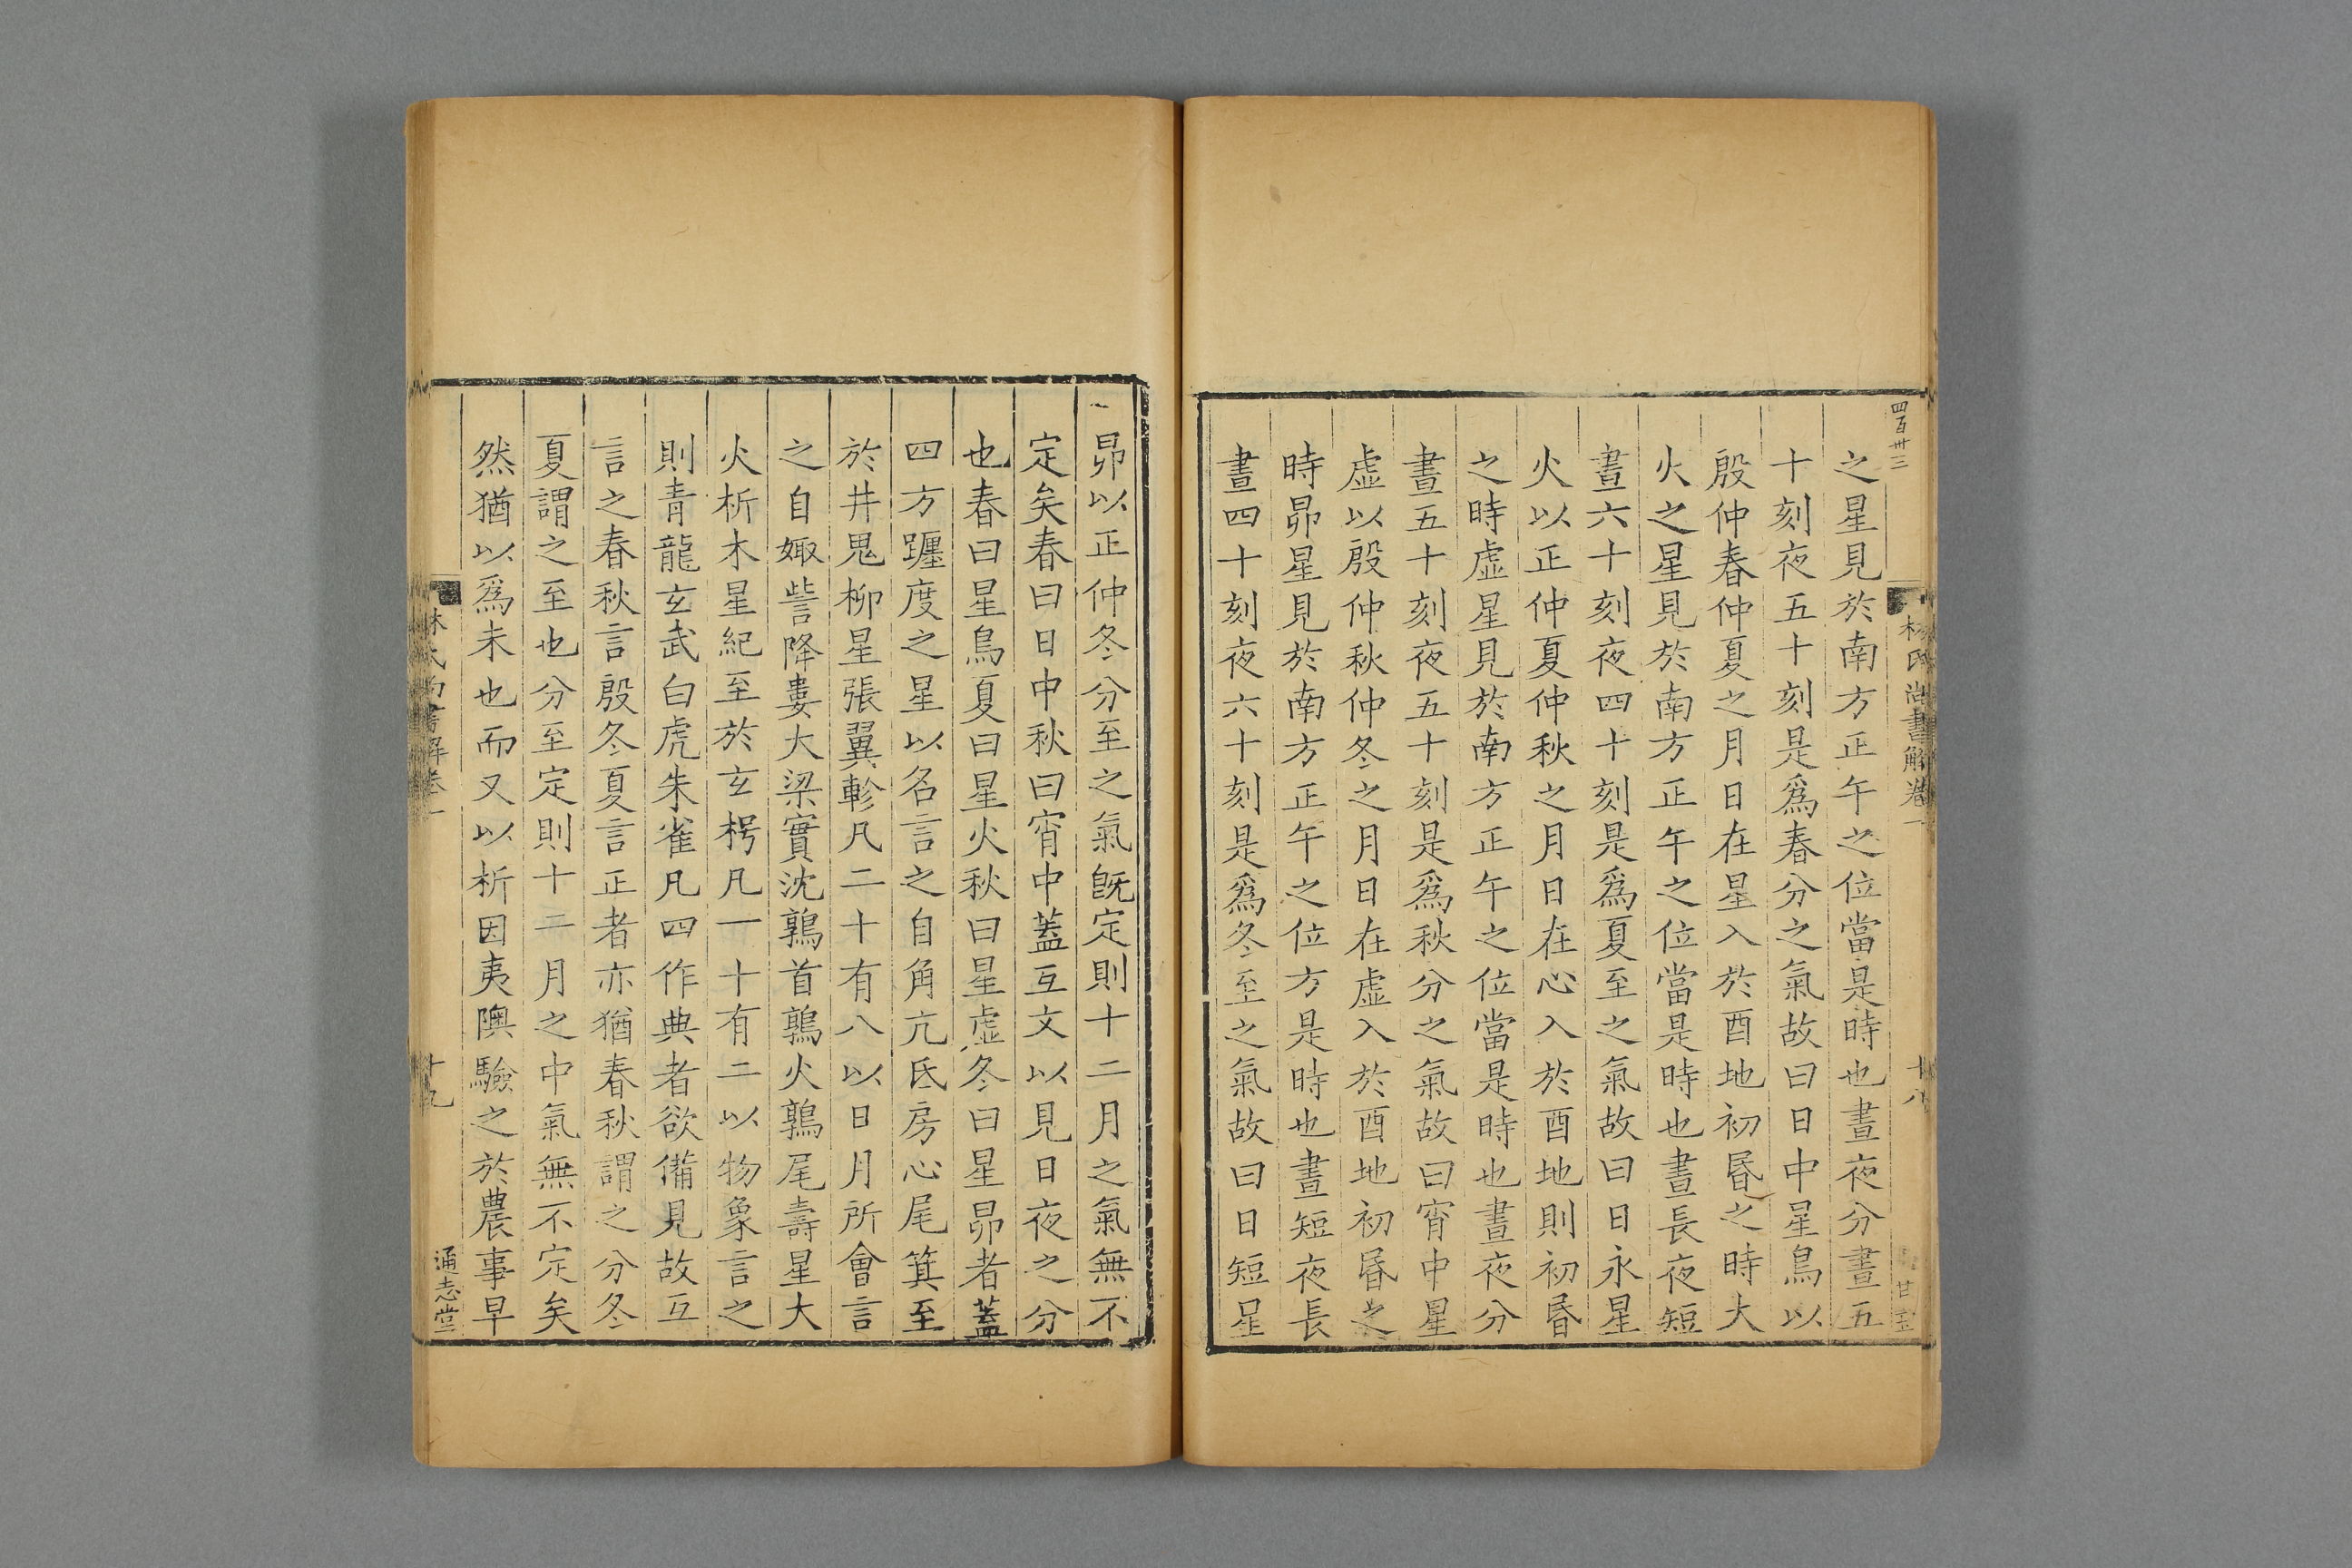 四百卅三
林氏尚書解卷一
十八
甘
之星見於南方正午之位當是時也晝夜分晝五
十刻夜五十刻是爲春分之氣故曰日中星鳥以
殷仲春仲夏之月日在星入於酉地初昬之時大
火之星見於南方正午之位當是時也晝長夜短
晝六十刻夜四十刻是爲夏至之氣故曰日永星
火以正仲夏仲秋之月日在心入於酉地則初昬
之時虛星見於南方正午之位當是時也晝夜分
晝五十刻夜五十刻是爲秋分之氣故曰宵中星
虛以殷仲秋仲冬之月日在虛入於酉地初昬之
時昴星見於南方正午之位方是時也晝短夜長
晝四十刻夜六十刻是爲冬至之氣故曰日短星
昴以正仲冬分至之氣旣定則十二月之氣無不
定矣春曰日中秋曰宵中蓋互文以見日夜之分
也春曰星鳥夏曰星火秋曰星虛冬曰星昴者蓋
四方躔度之星以名言之自角亢氐房心尾箕至
於井鬼柳星張翼軫凡二十有八以日月所會言
之自娵訾降婁大梁實沈鶉首鶉火鶉尾壽星大
火析木星紀至於玄枵凡一十有二以物象言之
則青龍玄武白虎朱雀凡四作典者欲備見故互
言之春秋言殷冬夏言正者亦猶春秋謂之分冬
夏謂之至也分至定則十二月之中氣無不定矣
然猶以爲未也而又以析因夷隩驗之於農事早
林氏尚書解卷一
十九
通志堂